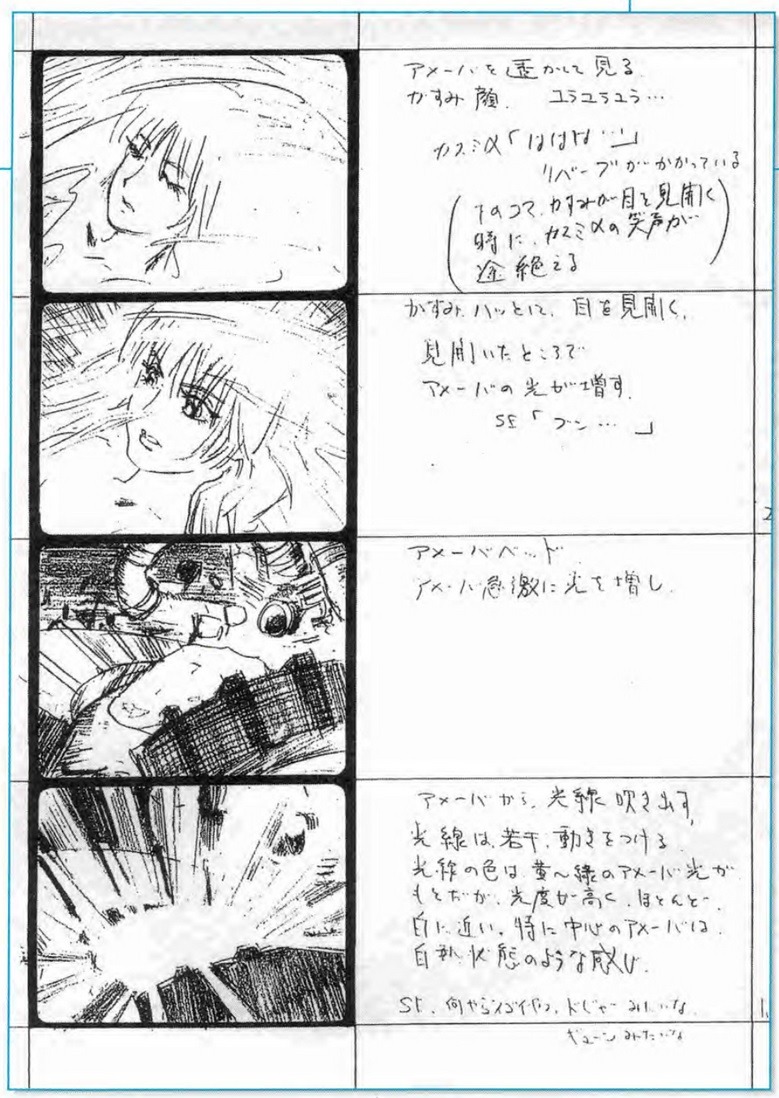 アメーバを透かして見る
かすみ顔. ユラユラユラ…
カスミα「ははは…」
リバーブがかかっている
(下のコマ、かすみが目を見開く
時に、カスミαの笑声が
途絶える)
かすみ、ハッとして、目を見開く、
見開いたところで
アメーバの光が増す.
SE「ブン…」
アメーバベッド
アメーバ急激に光を増し.
アメーバから、光線吹き出す.
光線は、若干、動きをつける
光線の色は、黄〜緑のアメーバ光が
もとだが、光度が高く、ほとんど
白に近い。特に中心のアメーバは、
白熱状態のような感じ.
SE. 何やらスゴイやつ, ドジャー みたいな
ギューン みたいな